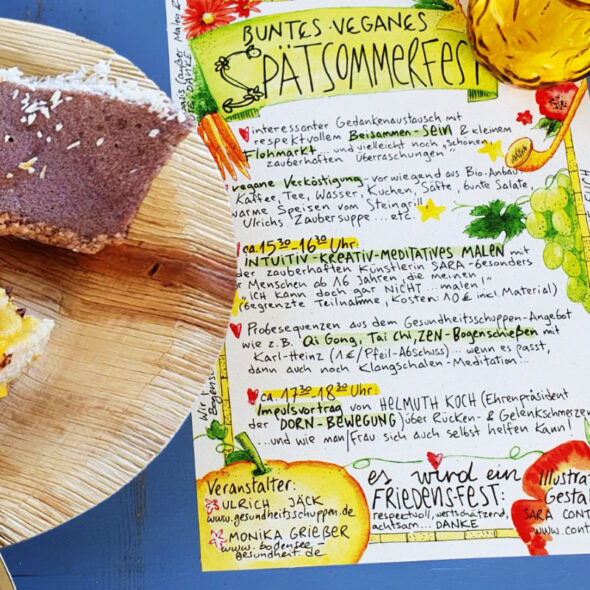 BUNTES VEGANES
SPÄTSOMMERFEST
interessanter Gedankenaustausch mit
respektvollem Beisammen-sein & kleinem
Flohmarkt... und vielleicht noch "schönen,
zauberhaften Überraschungen"
vegane Verköstigung - vorwiegend aus Bio-Anbau
Kaffee, Tee, Wasser, Kuchen, Säfte, bunte Salate,
warme Speisen vom Steingrill
Ulrichs Zaubersuppe.... etc.
ca. 15³⁰-16³⁰ Uhr:
INTUITIV-KREATIV-MEDITATIVES MALEN mit
der zauberhaften Künstlerin SARA - besonders
Menschen ab 16 Jahren, die meinen
"ICH kann doch gar NICHT ...malen!"
(begrenzte Teilnahme, Kosten: 10€ incl. Material)
Probesequenzen aus dem Gesundheitsschuppen-Angebot
wie z.B. Qi Gong, Tai Chi, ZEN-Bogenschießen mit
Karl-Heinz (1€/Pfeil-Abschuss)... wenn es passt,
dann auch noch Klangschalen-Meditation...
ca. 17³⁰-18³⁰ Uhr:
Impulsvortrag von HELMUTH KOCH (Ehrenpräsident
der DORN-BEWEGUNG) über Rücken- & Gelenkschmerzen
...und wie man/frau sich auch selbst helfen kann!
Veranstalter:
ULRICH JÄCK
www.gesundheitsschuppen.de
MONIKA GRIEßER
www.bodensee-
gesundheit.de
es wird ein
FRIEDENS-FEST:
respektvoll, wertschätzend,
achtsam... DANKE
Illustrat
Gestal
SARA CONT
www.cont